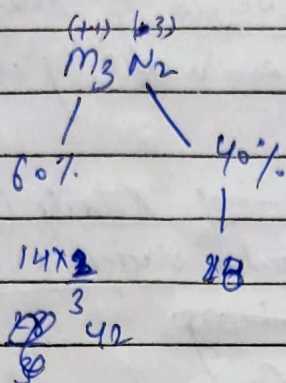 (++) (-3)
M3 N2
60% 40%
14×2 28
3
42